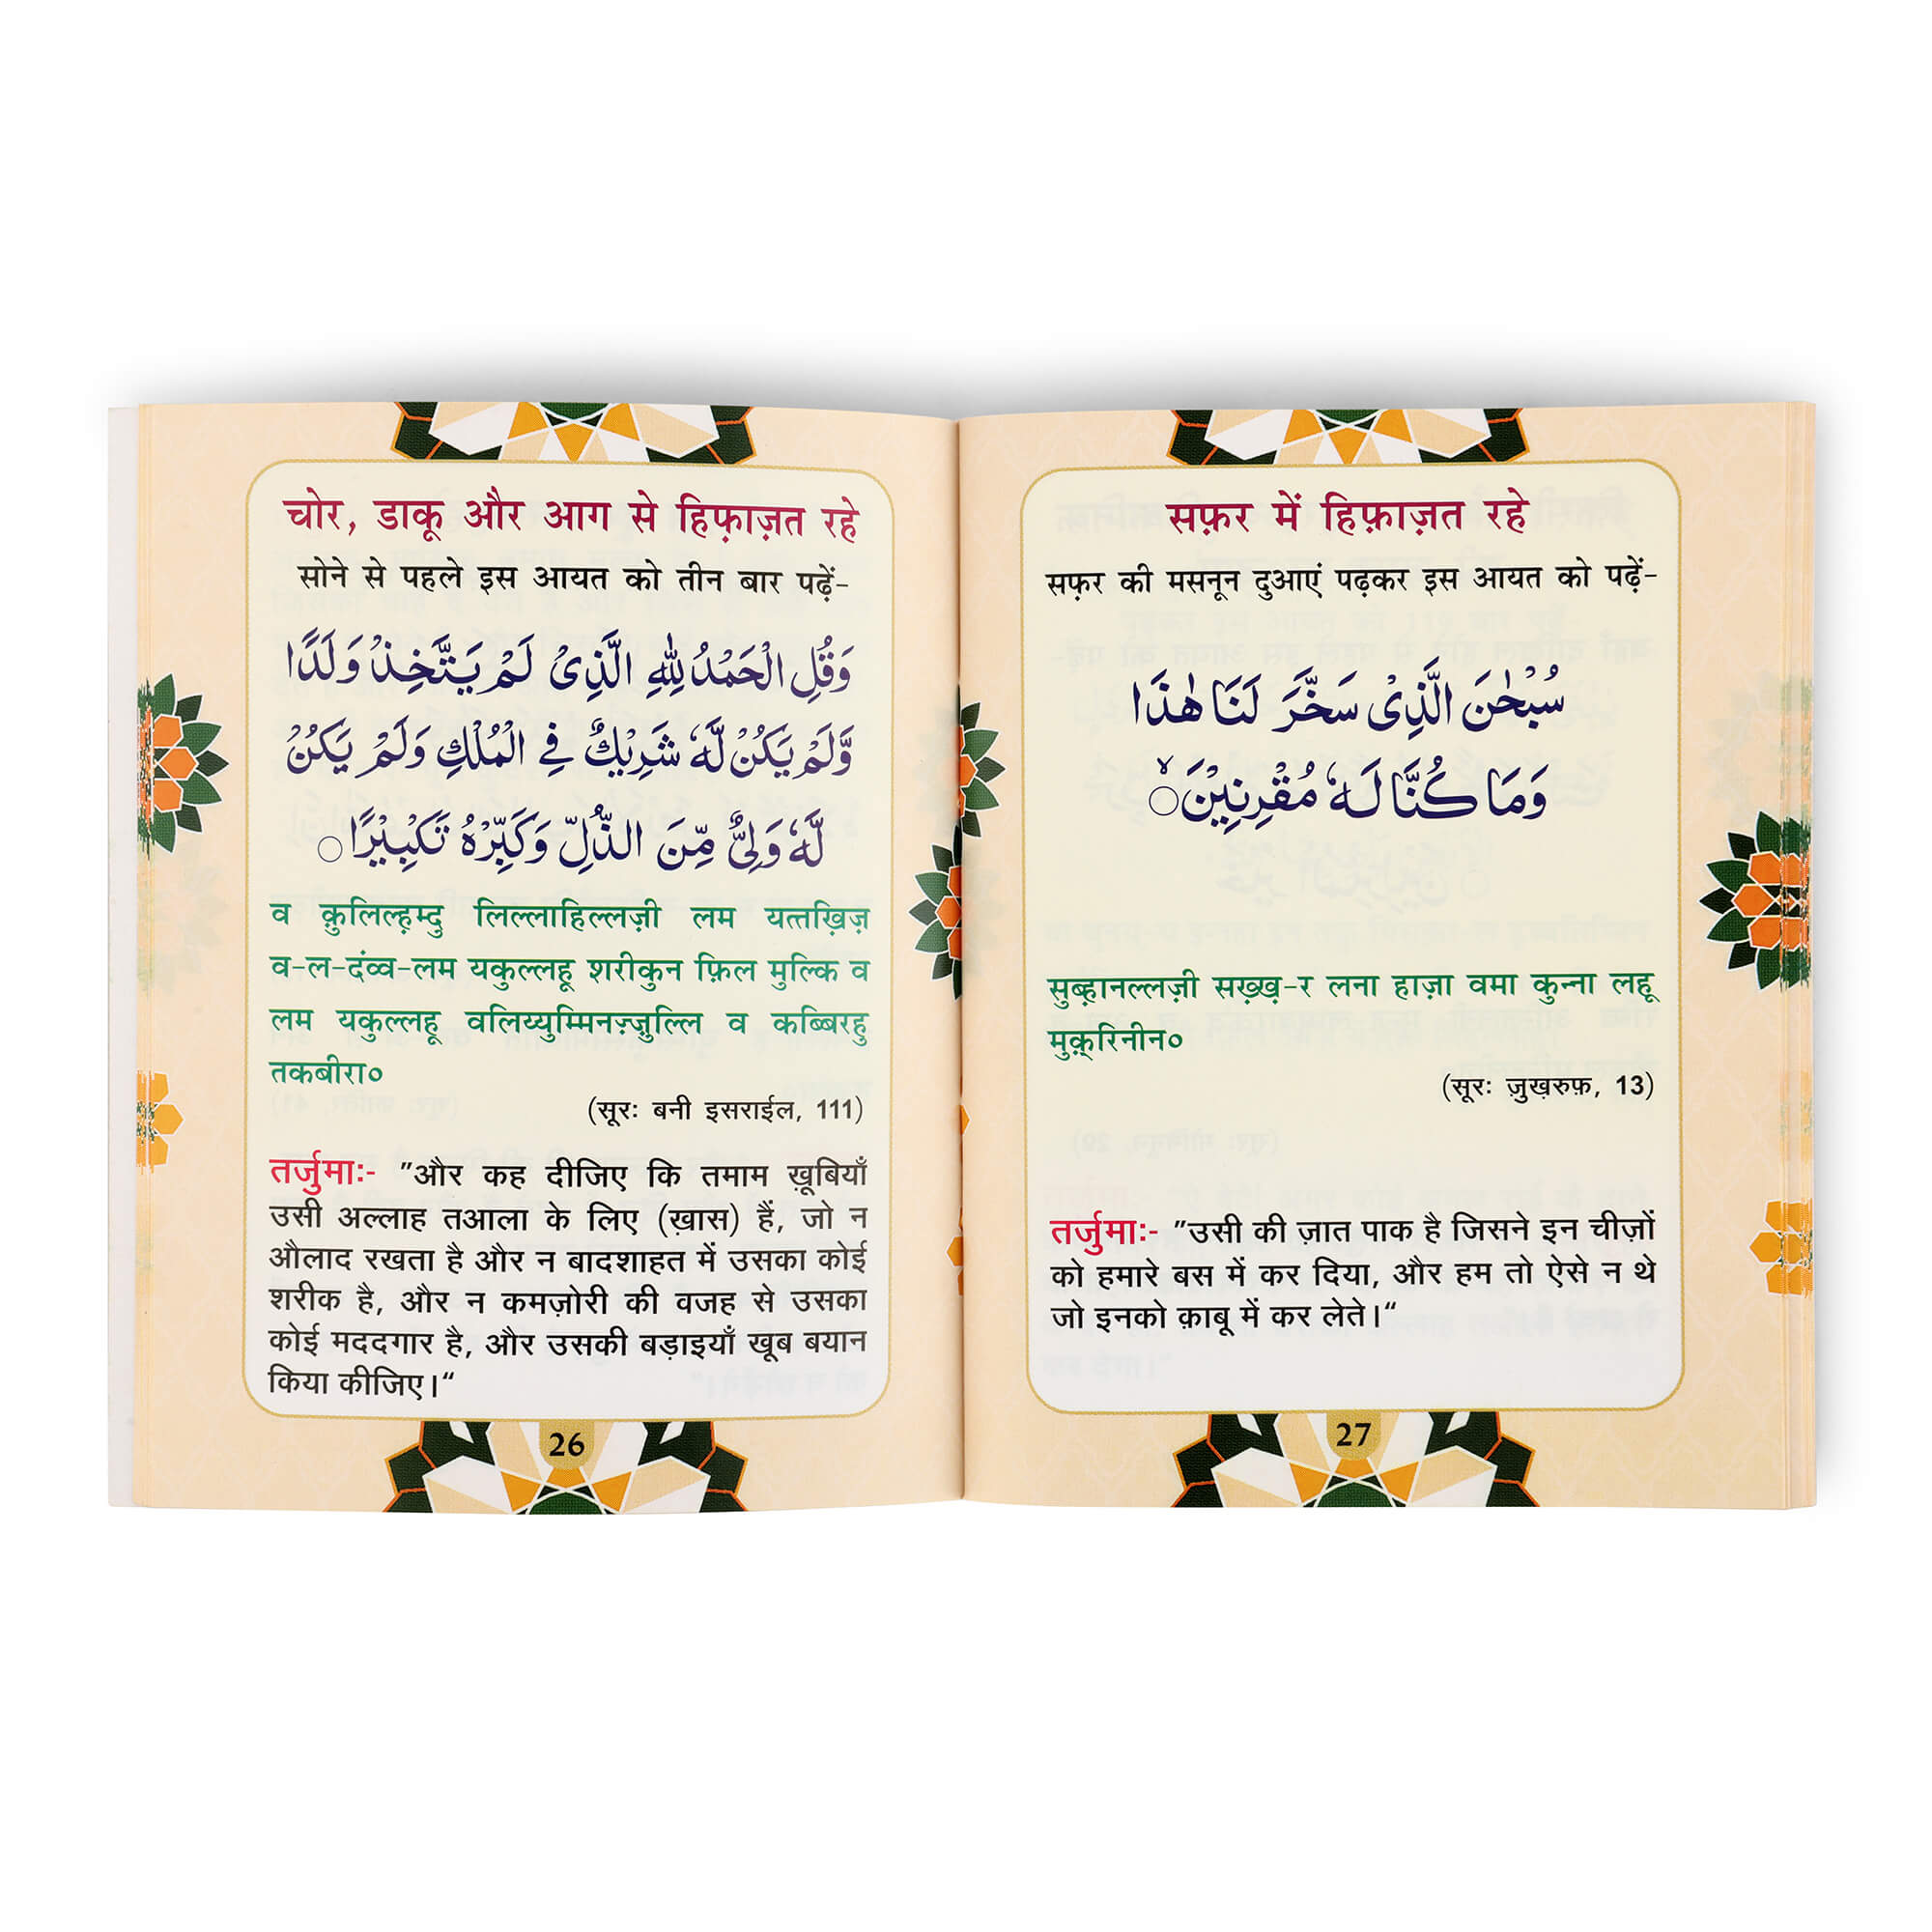 चोर, डाकू और आग से हिफ़ाज़त रहे
सोने से पहले इस आयत को तीन बार पढ़ें-
وَقُلِ الْحَمْدُ لِلّٰهِ الَّذِیْ لَمْ یَتَّخِذْ وَلَدًا
وَّلَمْ یَكُنْ لَّهٗ شَرِیْكٌ فِی الْمُلْكِ وَلَمْ یَكُنْ
لَّهٗ وَلِیٌّ مِّنَ الذُّلِّ وَكَبِّرْهُ تَكْبِیْرًا۝
व क़ुलिल्ह़म्दु लिल्लाहिल्लज़ी लम यत्तख़िज़
व-ल-दंव्व-लम यकुल्लहू शरीकुन फ़िल मुल्कि व
लम यकुल्लहू वलिय्युम्मिनज़्ज़ुल्लि व कब्बिरहु
तकबीरा०
(सूरः बनी इसराईल, 111)
तर्जुमाः- "और कह दीजिए कि तमाम ख़ूबियाँ
उसी अल्लाह तआला के लिए (ख़ास) हैं, जो न
औलाद रखता है और न बादशाहत में उसका कोई
शरीक है, और न कमज़ोरी की वजह से उसका
कोई मददगार है, और उसकी बड़ाइयाँ खूब बयान
किया कीजिए।"
26
सफ़र में हिफ़ाज़त रहे
सफ़र की मसनून दुआएं पढ़कर इस आयत को पढ़ें-
سُبْحٰنَ الَّذِیْ سَخَّرَ لَنَا هٰذَا
وَمَا كُنَّا لَهٗ مُقْرِنِیْنَ۝ۙ
सुब्ह़ानल्लज़ी सख़्ख़-र लना हाज़ा वमा कुन्ना लहू
मुक़्रिनीन०
(सूरः ज़ुख़रुफ़, 13)
तर्जुमाः- "उसी की ज़ात पाक है जिसने इन चीज़ों
को हमारे बस में कर दिया, और हम तो ऐसे न थे
जो इनको क़ाबू में कर लेते।"
27